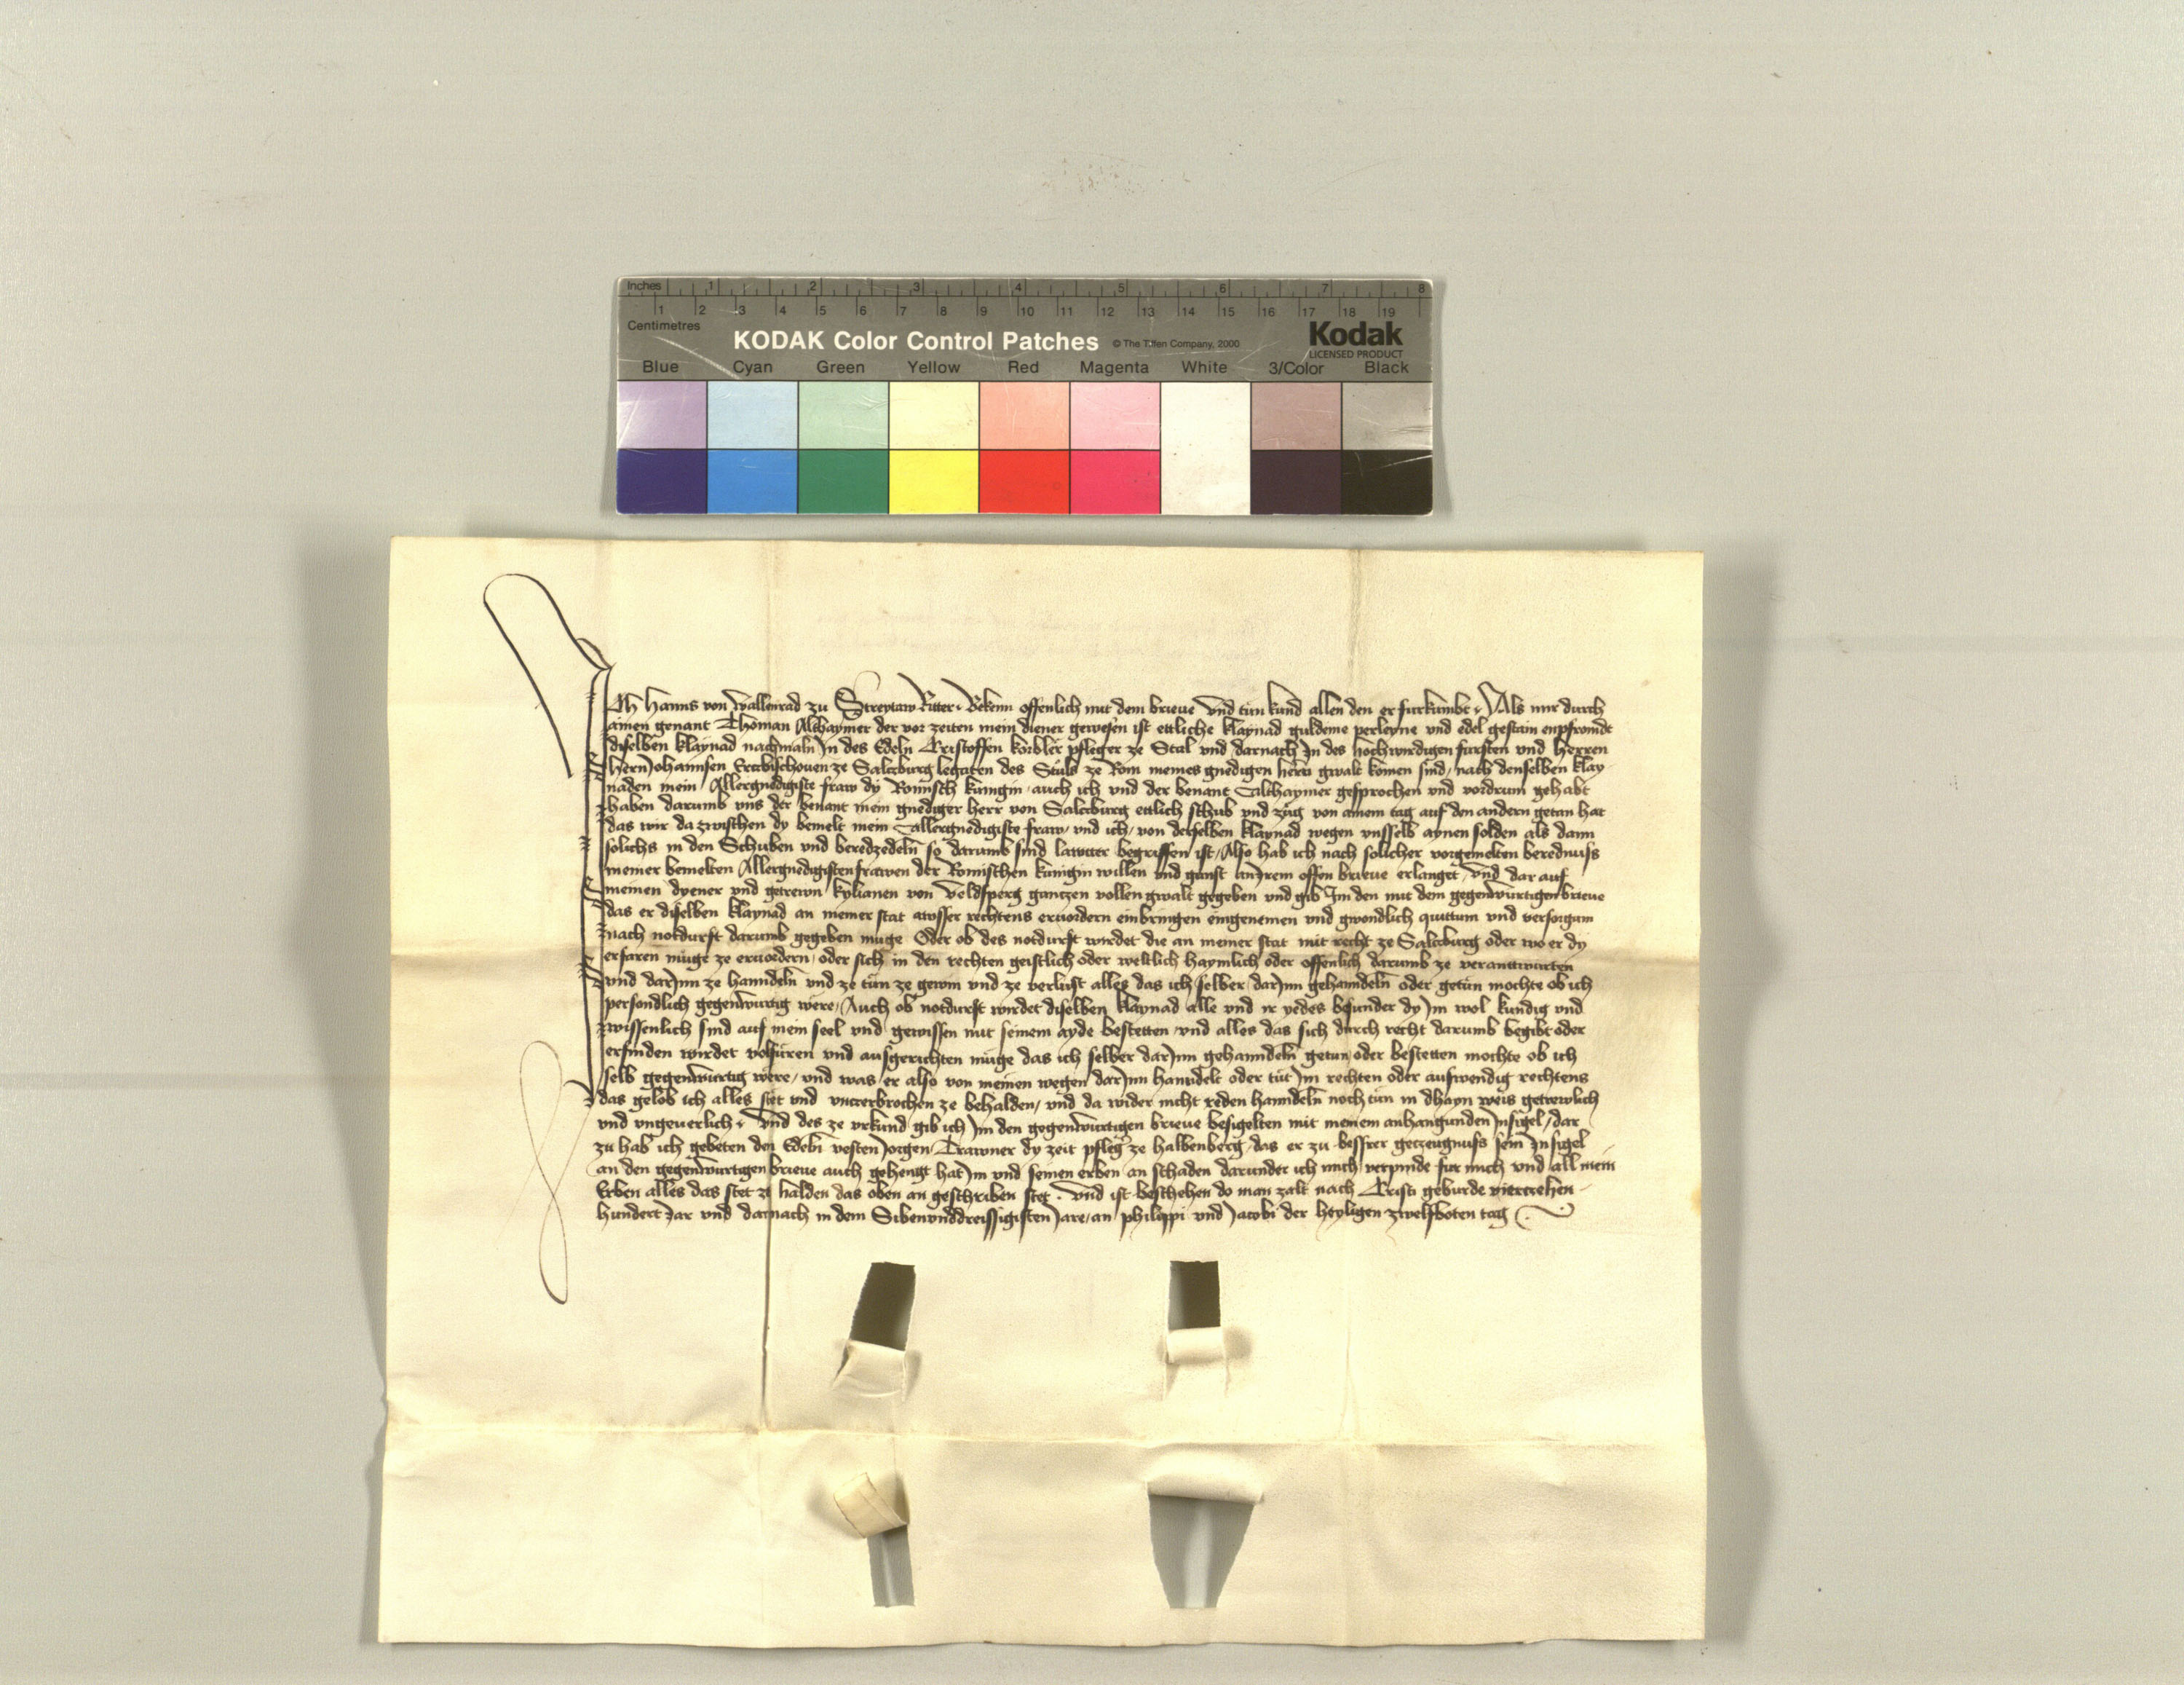 Inches 1 2 3 4 5 6 7 8
1 2 3 4 5 6 7 8 9 10 11 12 13 14 15 16 17 18 19
Centimetres
KODAK Color Control Patches © The Tiffen Company, 2000 Kodak
LICENSED PRODUCT
Blue Cyan Green Yellow Red Magenta White 3/Color Black
Ich Hanns von Wallenrad zu Streytaw Ritter Bekenn offenlich mit dem brieue und tun kund allen den er furkumbt Als mir durch
ainen genant Thoman Althaymer der vor zeiten mein diener gewesen ist ettliche klaynad guldeine perleyne und edel gestain enpfromdt
diselben klaynad nachmaln In des Edeln Cristoffen korbler pfleger ze Stal und darnach In des hochwirdigen fursten und herren
hern Johannsen Ertzbischouen ze Saltzburg legaten des Stuls ze Rom meines gnedigen herrn gwalt komen sind nach denselben klay
naden mein Allergnedigiste fraw dy Romisch kunigin auch ich und der benant Althaymer gesprochen und vordrum gehabt
haben darumb uns der benant mein gnediger herr von Saltzburg ettlich schub und zug von ainem tag auf den andern getan hat
das wir da zwischen dy bemelt mein allergnedigiste fraw und ich von derselben klaynad wegen unsselb aynen solden als dann
solichs in den Schuben und beredzedeln so darumb sind lawtter begriffen ist Also hab ich nach solicher vorgemelten berednuss
meiner bemelten Allergnedigisten frawen der Romischen kunigin willen und gunst in Irem offen brieue erlanget und dar auf
meinen dyener und getrewn kylianen von Veldsperg gantzen vollen gwalt gegeben und gib Im den mit dem gegenwurtigen brieue
das er diselben klaynad an meiner stat awsser rechtens eruordern einbringen eingenemen und gwondlich quittum und versorgum
nach notdurft darumb gegeben muge Oder ob des notdurft wirdet die an meiner stat mit recht ze Saltzburg oder wo er dy
erfaren muge ze eruordern oder sich in den rechten geistlich oder weltlich haymlich oder offenlich darumb ze verantwurten
und dar Inn ze hanndeln und ze tun ze gewin und ze verlust alles das ich selber dar Inn gehanndeln oder getun mochte ob ich
persondlich gegenwurtig were Auch ob notdurft wirdet diselben klaynad alle und ir yedes besunder dy Im wol kundig und
wissenlich sind auf mein seel und gewissen mit seinem ayde bestetten und alles das sich durch recht darumb begibt oder
erfinden wirdet volfuren und ausgerichten muge das ich selber dar Inn gehanndeln getun oder bestetten mochte ob ich
selb gegenwurtig were und was er also von meinen wegen dar Inn hanndelt oder tut Im rechten oder auswendig rechtens
das gelob ich alles stet und unczerbrochen ze behalden und da wider nicht reden hanndeln noch tun in dhayn weis getrewlich
und ungeuerlich und des ze urkund gib ich Im den gegenwurtigen brieue besigelten mit meinem anhangunden Insigel dar
zu hab ich gebeten den Edeln vesten Jorgen Trawner dy zeit pfleger ze halbenberg das er zu bessrer getzeugnuss sein Insigel
an den gegenwurtigen brieue auch gehengt hat Im und seinen erben an schaden darunder ich mich verpinde fur mich und all mein
Erben alles das stet ze halden das oben an geschriben stet und ist beschehen do man zalt nach Cristi geburde viertzehen
hundert Jar und darnach in dem Sibenunddreissigisten Jare an philippi und Jacobi der heyligen zwelfboten tag